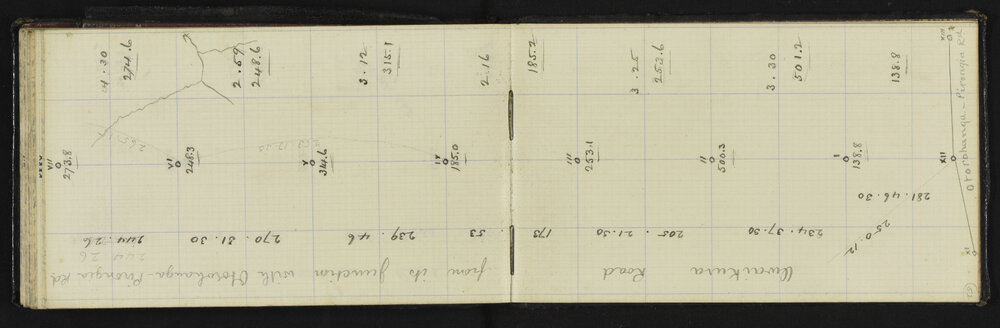 Otorohanga - Pirongia Rd
XIII
XII
XI
281. 46. 30
250. 12
138.8
I
138.8
234. 37. 30
3. 30
501.2
II
500.3
205. 21. 30
3. 25
253.6
III
253.1
173
185.2
53
2. 16
IV
185.0
239. 46
3. 12
315.1
V
314.6
270. 31. 30
2. 59
248.6
VI
248.3
244. 26
244 26
4. 30
274.6
VII
273.8
VIII
Road
from its junction with Otorohanga - Pirongia Rd.